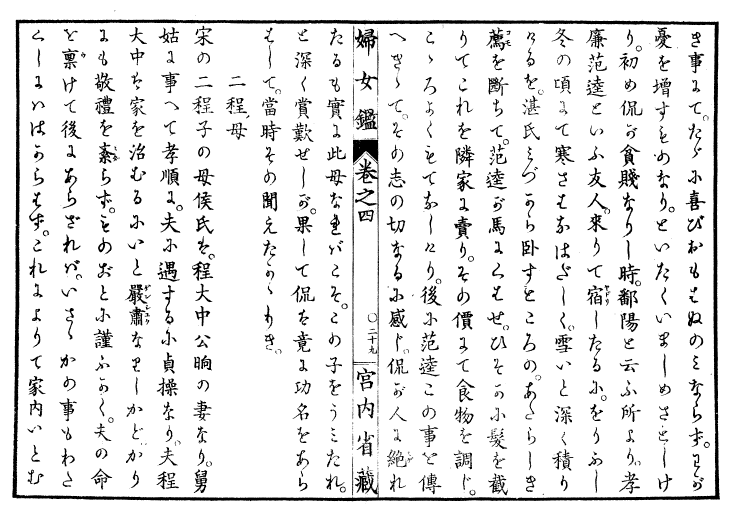 き事にて。たゞに喜びおもはぬのミならず。わが
憂を增すものなり。といたくいましめさとしけ
り。初め侃が貧賤なりし時。鄱陽と云ふ所より。孝
廉范逵といふ友人。來りて宿したるに。をりふし
冬の頃にて寒さもなはだしく。雪いと深く積り
けるを。湛氏ミづから臥すところの。あたらしき
薦を斷ちて。范逵が馬にくはせ。ひそかに髮を截
りてこれを隣家に賣り。その價にて食物を調じ。
こゝろよくもてなしけり。後に范逵この事を傳
へきゝて。その志の切なるに感じ。侃が人に絶れ
婦女鑑 卷之四 〇二十九 宮内省藏
たるも實に此母なればこそ。この子をうミたれ。
と深く賞歎せしが。果して侃は竟に功名をあら
はして。當時その聞えたかゝりき。
二程ノ母
宋の二程子の母侯氏は。程大中公晌の妻なり。舅
姑に事へて孝順に。夫に遇するに貞操なり。夫程
大中は家を治むるにいと嚴肅なりしかどかり
にも敬禮を紊らず。ものおとに謹ふかく。夫の命
を稟けて後にあらざれば。いさゝかの事もわた
くしにははからはず。これによりて家内いとむ